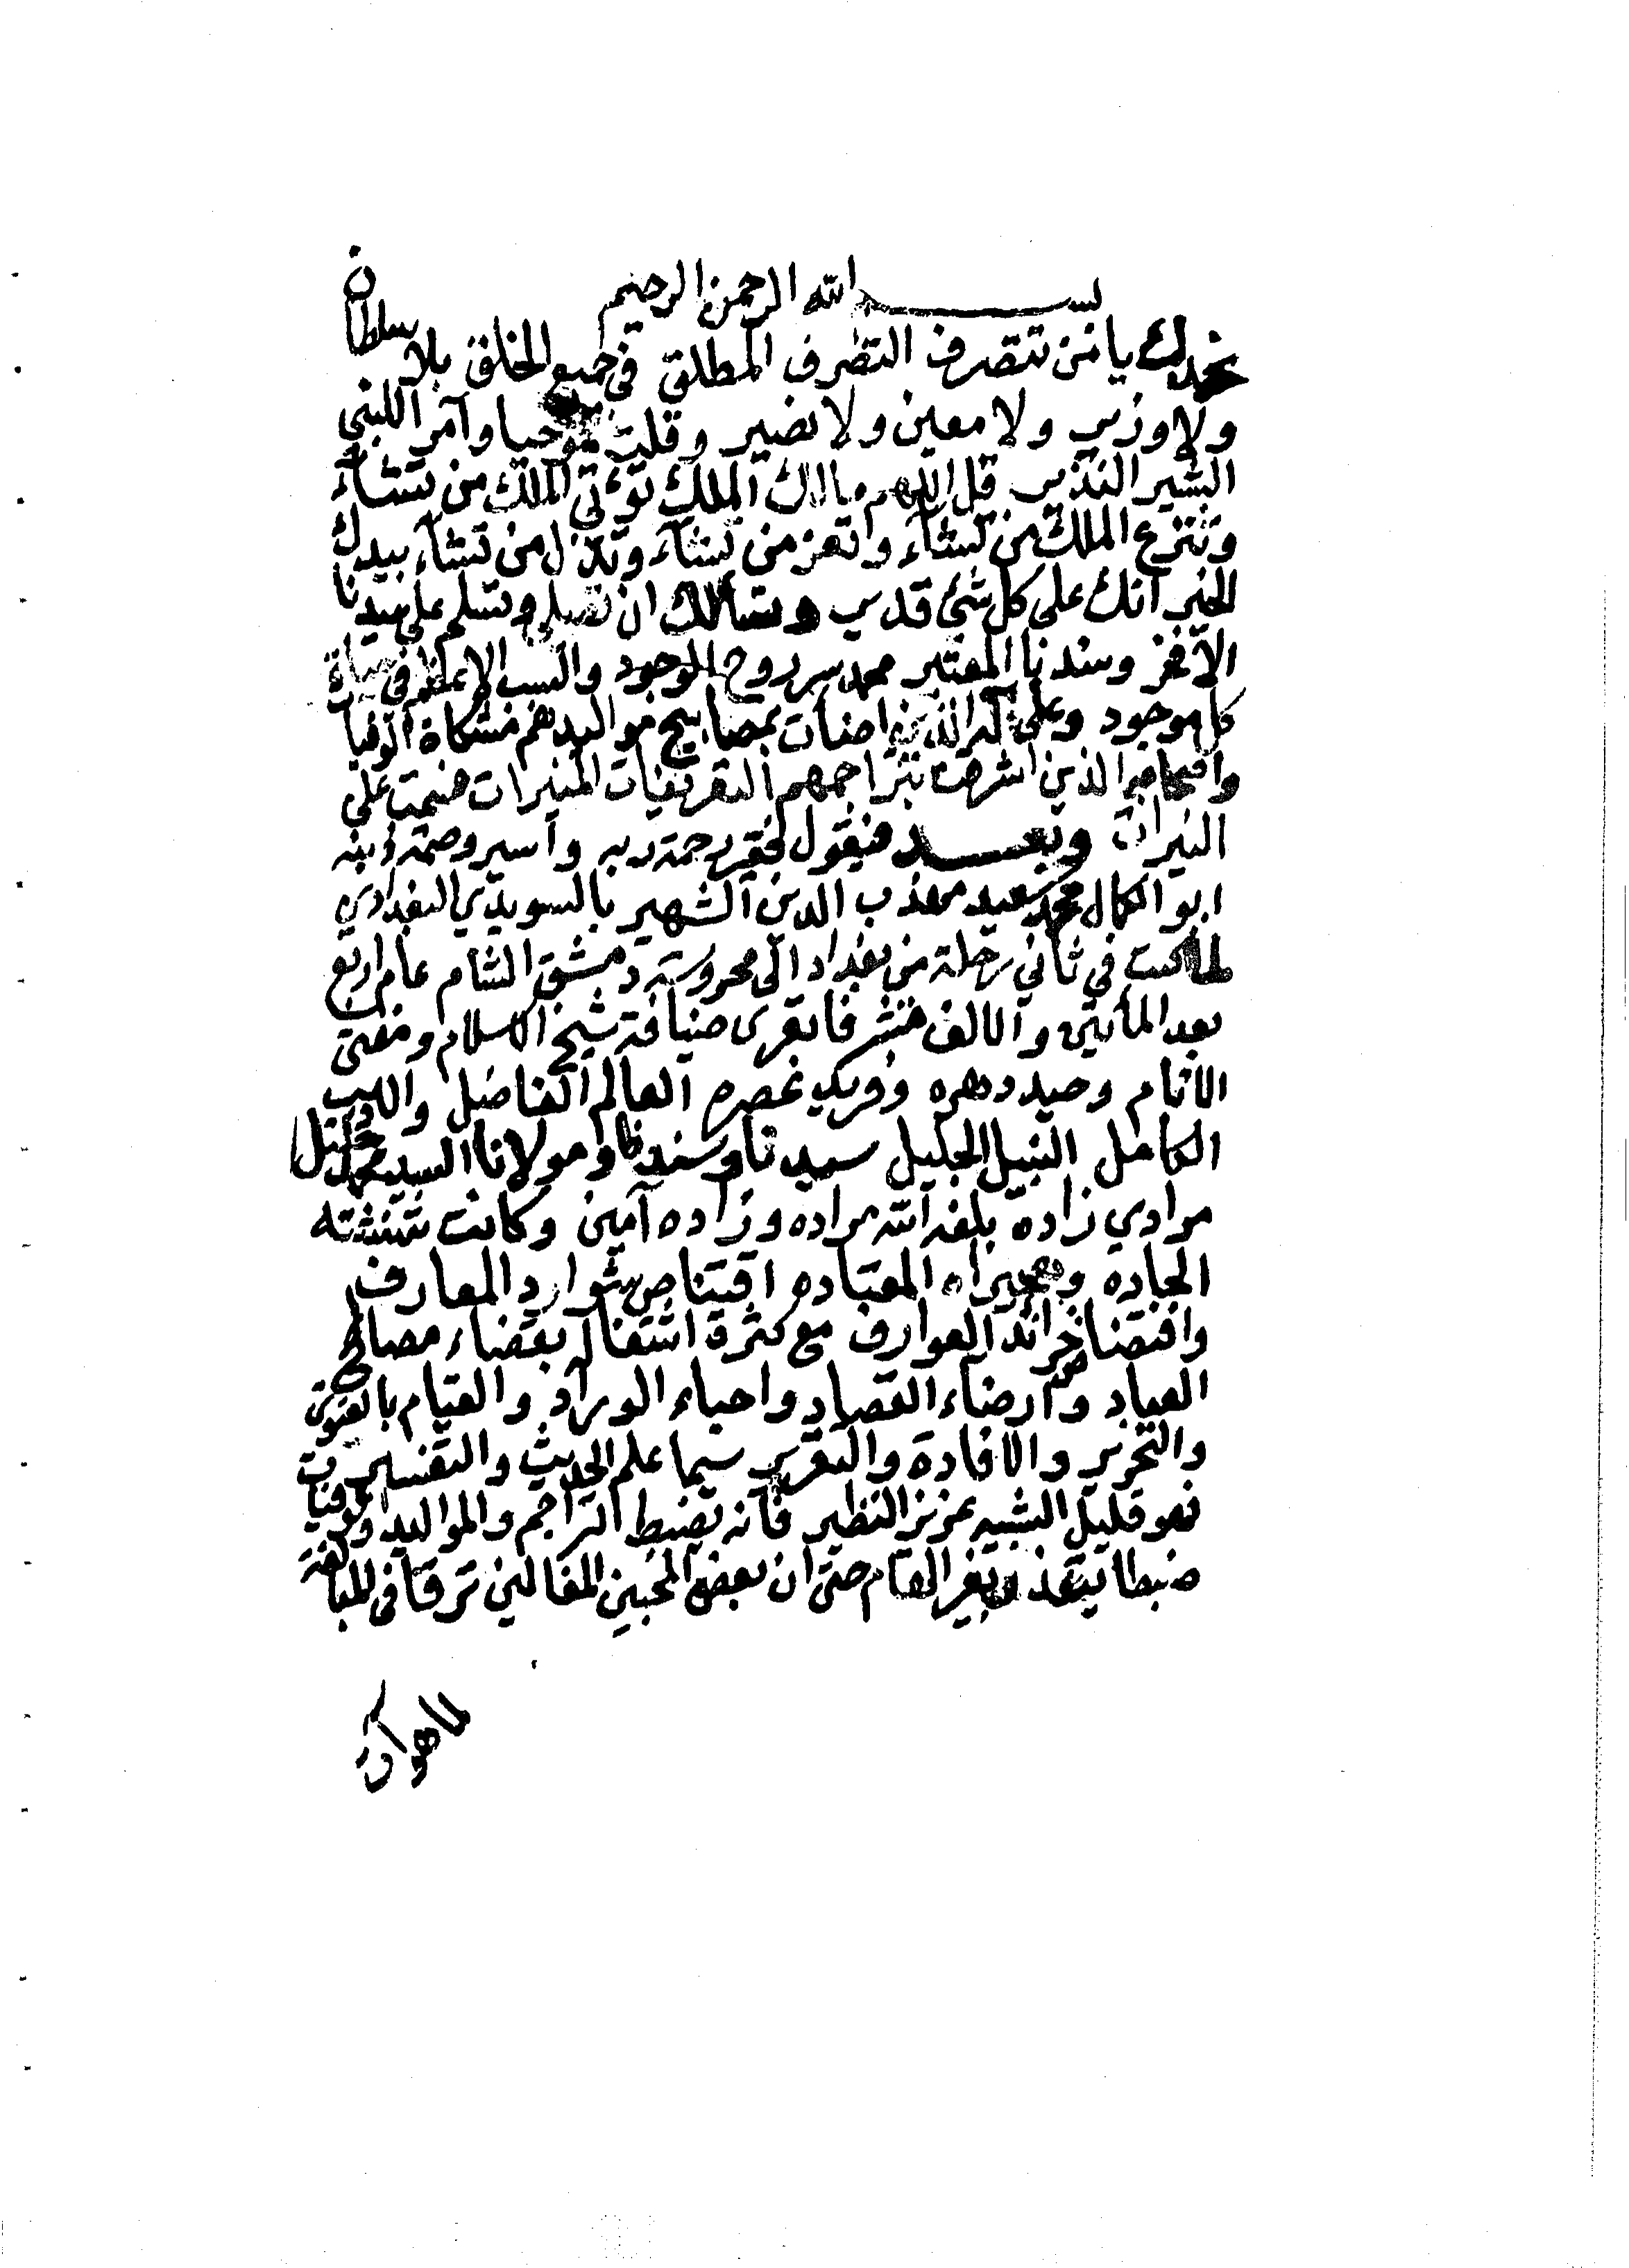 بسم الله الرحمن الرحيم
نحمدك يا من تتصرف التصرف المطلق في جميع الخلق بلا سلطان
ولا وزير ولا معين ولا نصير وقلت موحيا وآمر النبي
البشير النذير قل اللهم مالك الملك تؤتي الملك من تشاء
وتنزع الملك من تشاء وتعز من تشاء وتذل من تشاء بيدك
الخير انك على كل شئ قدير ونسألك ان تصلي وتسلم على سيدنا
الافخر وسندنا المعتبر محمد سر روح الوجود والسبب الاعظم في
كل موجود وعلى آله الذين اضائت بمصابيح مواليدهم مشكاة الوفيات
واصحابه الذين اشرقت بتراجمهم التعريفات المنيرات على
النيرات وبعد فيقول فقير رحمة ربه وأسير وصمة ذنبه
ابو الكمال محمد سعيد مهذب الدين الشهير بالسويدي البغدادي
لما كنت في ثاني رحلة من بغداد الى محروسة دمشق الشام عام اربع
بعد المائتين والالف متشرفا بقرى ضيافة شيخ الاسلام ومفتي
الانام وحيد دهره وفريد عصره العالم الفاضل والاديب
الكامل النبيل الجليل سيدنا وسندنا ومولانا السيد محمد خليل
مرادي زاده بلغه الله مراده وزاده آمين وكانت شنشنته
الجاده وهجيراه المعتاده اقتناص شوارد المعارف
واقتضا خرائد العوارف مع كثرة اشتغاله بقضاء مصالح
العباد وارضاء القصاد واحباء الوراد والقيام بالفتوى
والتحرير والافادة والتقرير سيما علم الحديث والتفسير
فهو قليل الشبيه عزيز النظير فانه يضبط التراجم والمواليد والوفيات
ضبطا يتعذر بغير الهام حتى ان بعض المحبين المغالين ترقا في المبالغة